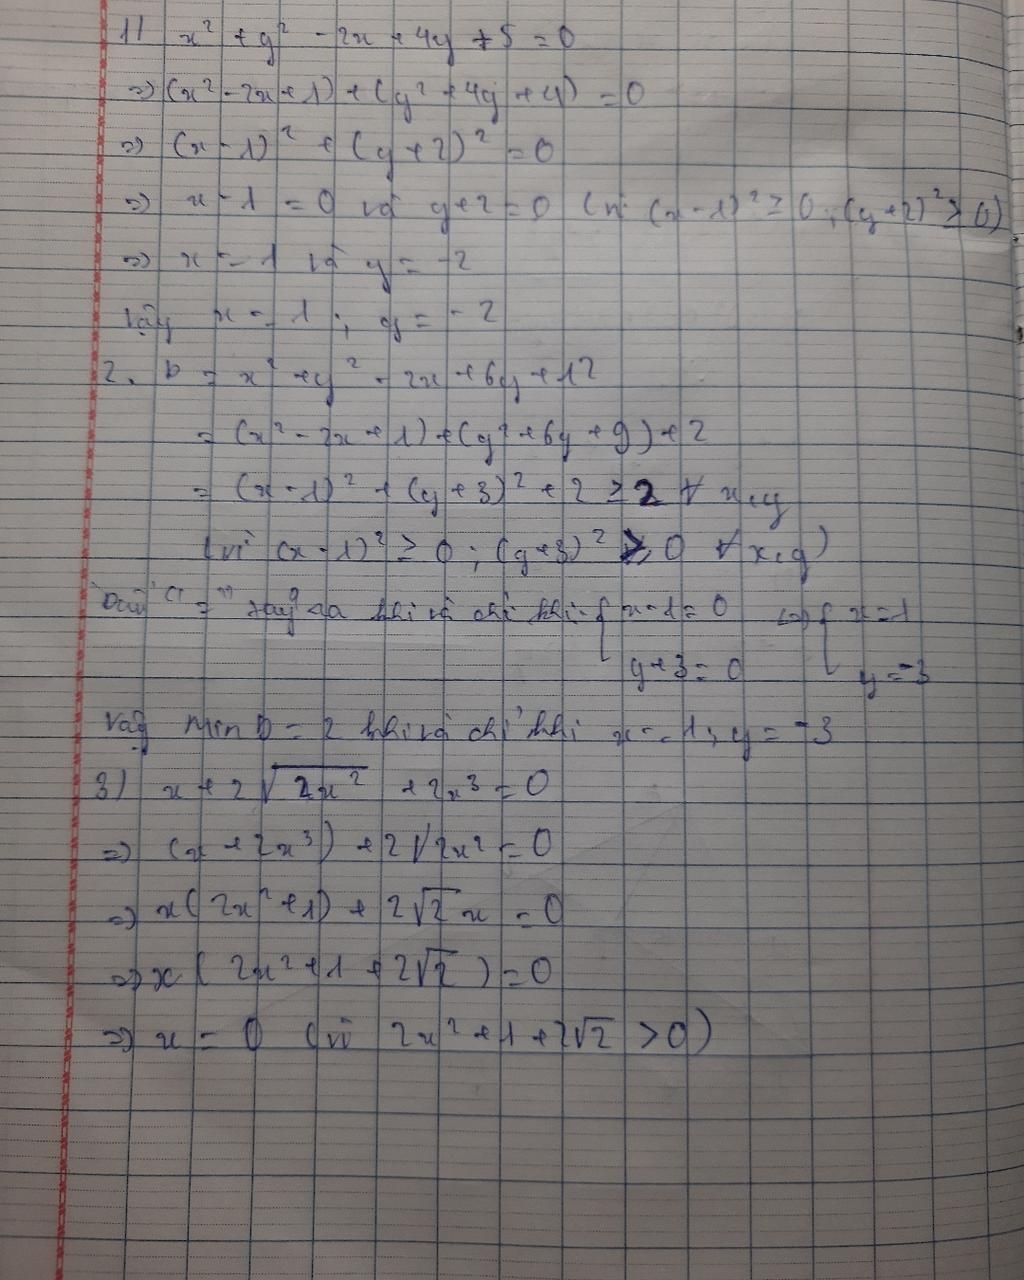 1) x² + y² - 2x + 4y + 5 = 0
=> (x² - 2x + 1) + (y² + 4y + 4) = 0
=> (x - 1)² + (y + 2)² = 0
=> x - 1 = 0 và y + 2 = 0 (vì (x - 1)² ≥ 0 ; (y + 2)² ≥ 0)
=> x = 1 và y = -2
Vậy x = 1 ; y = -2
2. D = x² + y² - 2x + 6y + 12
= (x² - 2x + 1) + (y² + 6y + 9) + 2
= (x - 1)² + (y + 3)² + 2 ≥ 2 ∀ x, y
(vì (x - 1)² ≥ 0 ; (y + 3)² ≥ 0 ∀ x, y)
Dấu " = " xảy ra khi và chỉ khi { x - 1 = 0 <=> { x = 1
y + 3 = 0 y = -3
Vậy Min D = 2 khi và chỉ khi x = 1 ; y = -3
3) x + 2√(2x²) + 2x³ = 0
=> (x + 2x³) + 2√(2x²) = 0
=> x(2x² + 1) + 2√2 x = 0
=> x(2x² + 1 + 2√2) = 0
=> x = 0 (vì 2x² + 1 + 2√2 > 0)